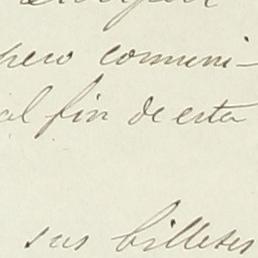 pero comuni-
al fin de esta
sus billetes